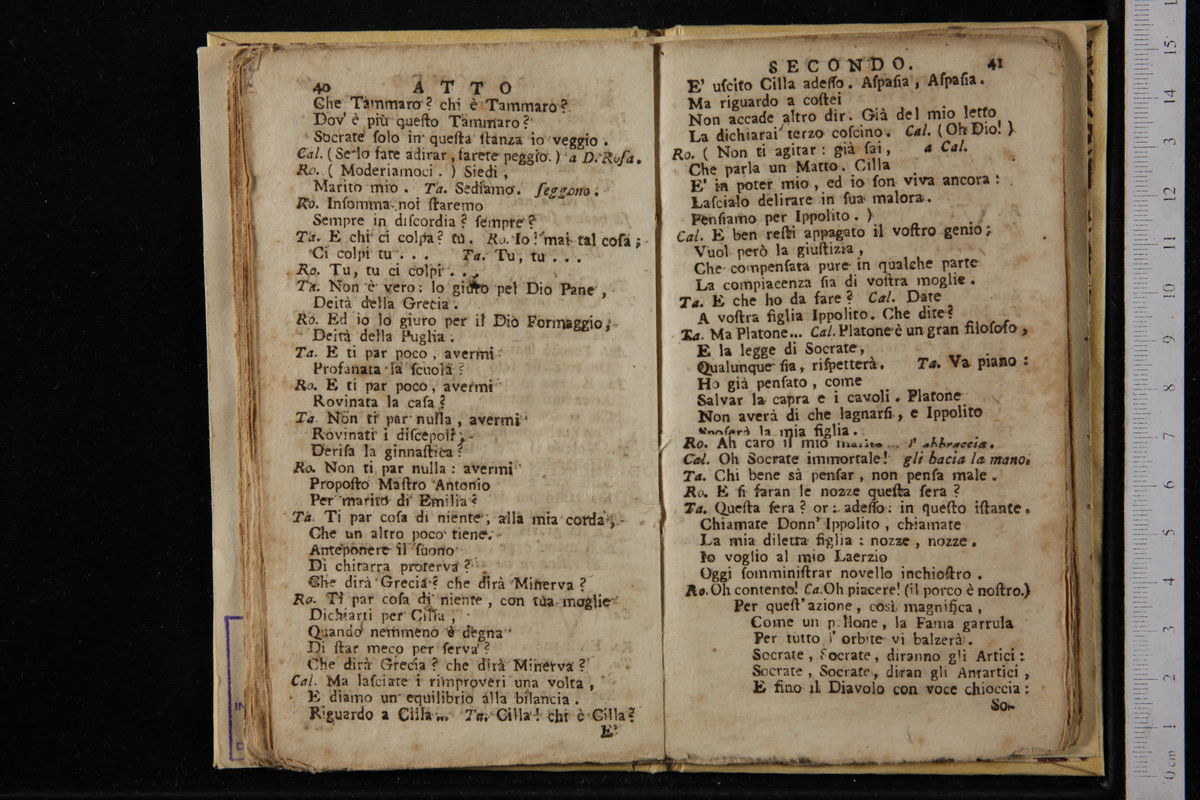 40 ATTO
Che Tammaro? chi è Tammaro?
Dov' è più queſto Tammaro?
Socrate ſolo in queſta ſtanza io veggio.
Cal. (Se lo fate adirar, farete peggio.) a D. Roſa.
Ro. (Moderiamoci.) Siedi,
Marito mio. Ta. Sediamo. ſeggono.
Ro. Inſomma noi ſtaremo
Sempre in diſcordia? ſempre?
Ta. E chi ci colpa? tu. Ro. Io! mai tal coſa;
Ci colpi tu... Ta. Tu, tu...
Ro. Tu, tu ci colpi...
Ta. Non è vero: lo giuro pel Dio Pane,
Deità della Grecia.
Ro. Ed io lo giuro per il Dio Formaggio,
Deità della Puglia.
Ta. E ti par poco, avermi
Profanata la ſcuola?
Ro. E ti par poco, avermi
Rovinata la caſa?
Ta. Non ti par nulla, avermi
Rovinati i diſcepoli,
Deriſa la ginnaſtica?
Ro. Non ti par nulla: avermi
Propoſto Maſtro Antonio
Per marito di Emilia?
Ta. Ti par coſa di niente, alla mia corda,
Che un altro poco tiene.
Anteponere il ſuono
Di chitarra proterva?
Che dirà Grecia? che dirà Minerva?
Ro. Ti par coſa di niente, con tua moglie
Dichiarti per Cilla,
Quando nemmeno è degna
Di ſtar meco per ſerva?
Che dirà Grecia? che dirà Minerva?
Cal. Ma laſciate i rimproveri una volta,
E diamo un equilibrio alla bilancia.
Riguardo a Cilla... Ta. Cilla! chi è Cilla?
E'
SECONDO. 41
E' uſcito Cilla adeſſo. Aſpaſia, Aſpaſia.
Ma riguardo a coſtei
Non accade altro dir. Già del mio letto
La dichiarai terzo coſcino. Cal. (Oh Dio!)
Ro. (Non ti agitar: già ſai, a Cal.
Che parla un Matto. Cilla
E' in poter mio, ed io ſon viva ancora:
Laſcialo delirare in ſua malora.
Penſiamo per Ippolito.)
Cal. E ben reſti appagato il voſtro genio;
Vuol però la giuſtizia,
Che compenſata pure in qualche parte
La compiacenza ſia di voſtra moglie.
Ta. E che ho da fare? Cal. Date
A voſtra figlia Ippolito. Che dite?
Ta. Ma Platone... Cal. Platone è un gran filoſofo,
E la legge di Socrate,
Qualunque ſia, riſpetterà. Ta. Va piano:
Ho già penſato, come
Salvar la capra e i cavoli. Platone
Non averà di che lagnarſi, e Ippolito
Spoſerà la mia figlia.
Ro. Ah caro il mio marito... l' abbraccia.
Cal. Oh Socrate immortale! gli bacia la mano.
Ta. Chi bene sà penſar, non penſa male.
Ro. E ſi faran le nozze queſta ſera?
Ta. Queſta ſera? or: adeſſo: in queſto iſtante.
Chiamate Donn' Ippolito, chiamate
La mia diletta figlia: nozze, nozze.
Io voglio al mio Laerzio
Oggi ſomminiſtrar novello inchioſtro.
Ro. Oh contento! Ca. Oh piacere! (il porco è noſtro.)
Per queſt' azione, così magnifica,
Come un pallone, la Fama garrula
Per tutto l' orbite vi balzerà.
Socrate, Socrate, diranno gli Artici:
Socrate, Socrate, diran gli Antartici,
E fino il Diavolo con voce chioccia:
So-